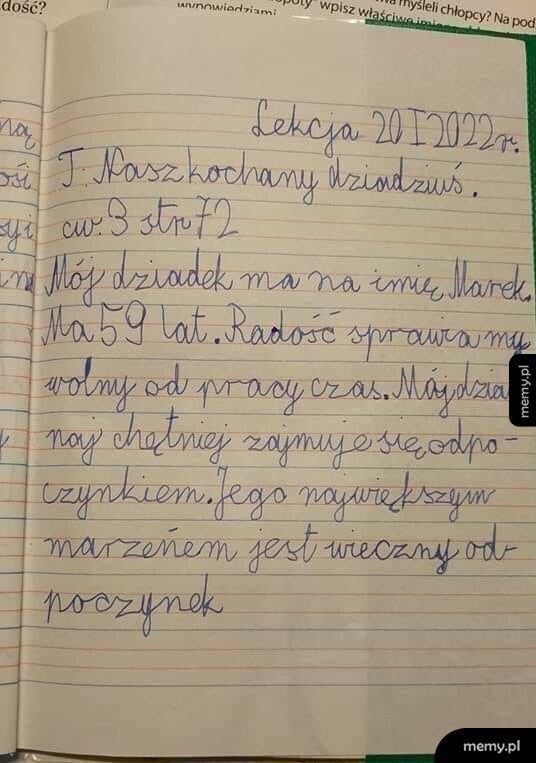 dość?
myśleli chłopcy? Na pod
wpisz właściwe
wypowiedziami
Lekcja 20 I 2022r.
T: Nasz kochany dziadziuś.
ćw. 3 str 72
Mój dziadek ma na imię Marek.
Ma 59 lat. Radość sprawia my
wolny od pracy czas. Mój dzia
naj chętniej zajmuje się odpo-
czynkiem. Jego największym
marzeńem jest wieczny od-
poczynek
memy.pl
memy.pl